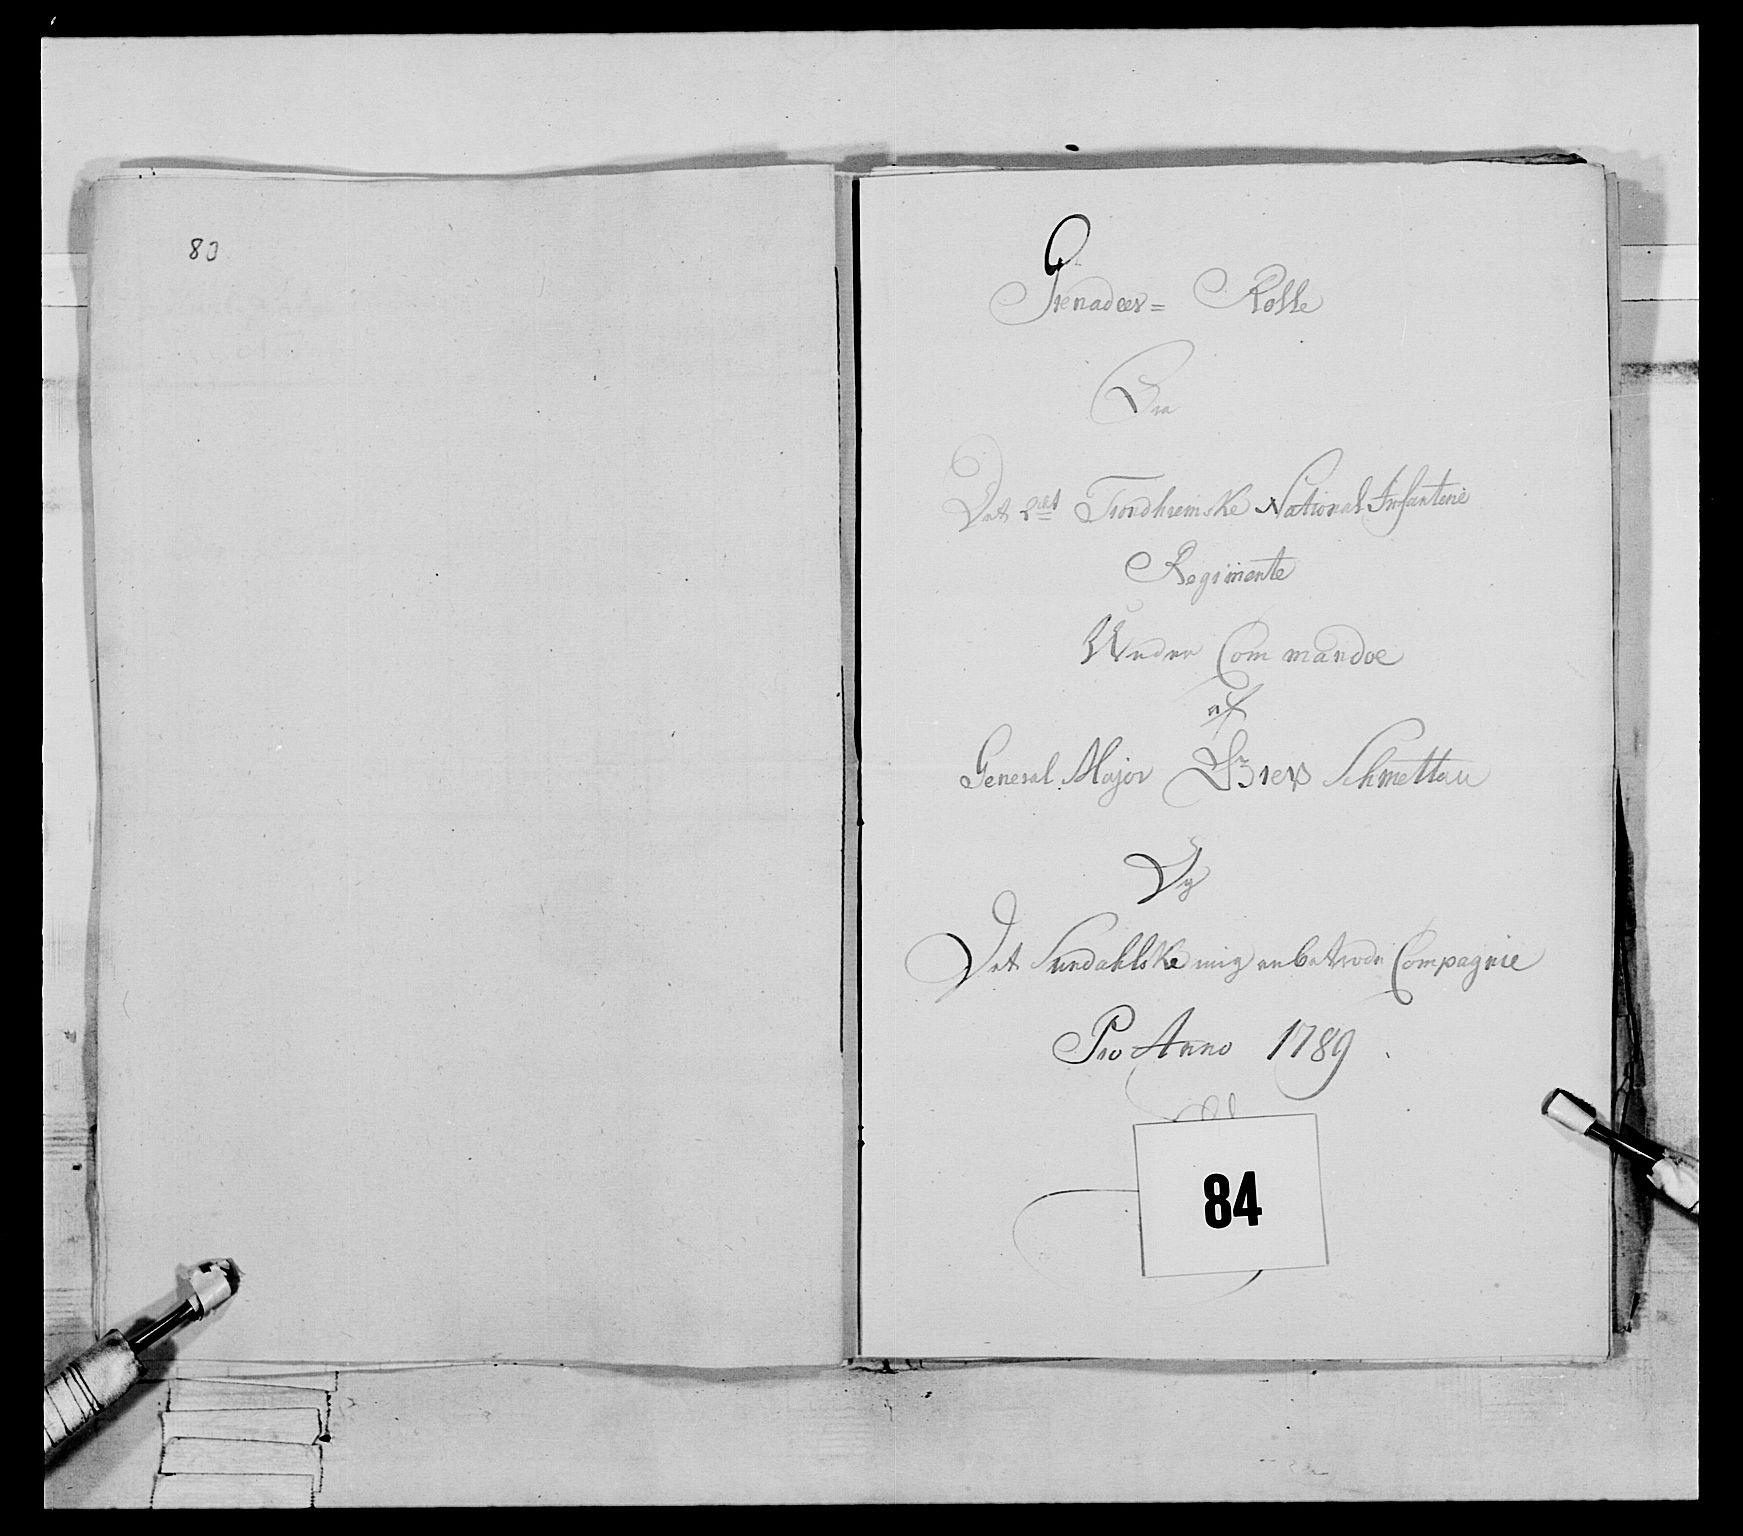 80
Grenadeer= Rolle
Fra
Det 2det Trondhiemske National Infanterie
Regimente
Under Commandoe
af
General Major Schmettau
Ved
Det Sundahlske mig anbetroede Compagnie
Pro Anno 1789
84